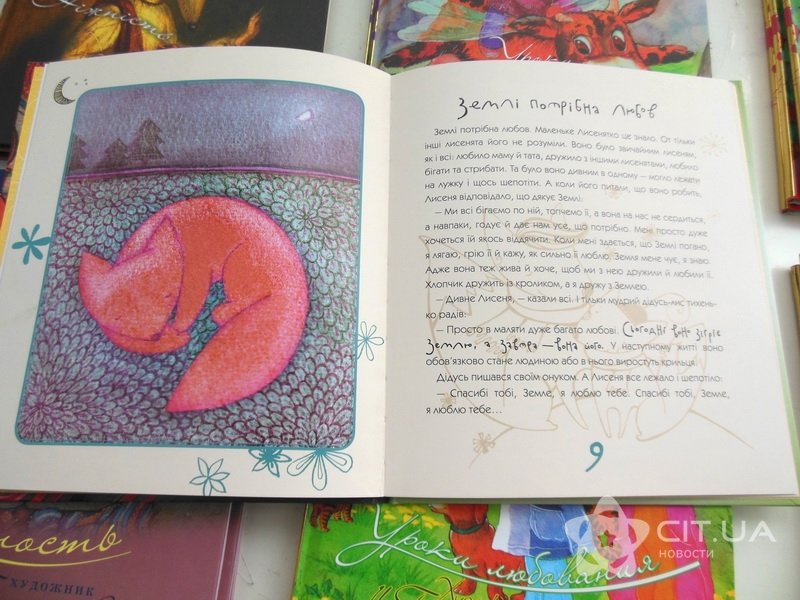 Ніжність
Уроки
Землі потрібна любов
Землі потрібна любов. Маленьке Лисенятко це знало. От тільки
інші лисенята його не розуміли. Воно було звичайним лисеням,
як і всі: любило маму й тата, дружило з іншими лисенятами, любило
бігати та стрибати. Та було воно дивним в одному — могло лежати
на лужку і щось шепотіти. А коли його питали, що воно робить,
Лисеня відповідало, що дякує Землі:
— Ми всі бігаємо по ній, топчемо її, а вона на нас не сердиться,
а навпаки, годує й дає нам усе, що потрібно. Мені просто дуже
хочеться їй якось віддячити. Коли мені здається, що Землі погано,
я лягаю, грію її й кажу, як сильно її люблю. Земля мене чує, я знаю.
Адже вона теж жива й хоче, щоб ми з нею дружили й любили її.
Хлопчик дружить із кроликом, а я дружу з Землею.
— Дивне Лисеня, — казали всі. І тільки мудрий дідусь-лис тихень-
ко радів:
— Просто в маляти дуже багато любові. Сьогодні воно зігріє
Землю, а завтра — вона його. У наступному житті воно
обов'язково стане людиною або в нього виростуть крильця.
Дідусь пишався своїм онуком. А Лисеня все лежало і шепотіло:
— Спасибі тобі, Земле, я люблю тебе. Спасибі тобі, Земле,
я люблю тебе…
9
ность
художник
Уроки любования
CIT.UA
НОВОСТИ